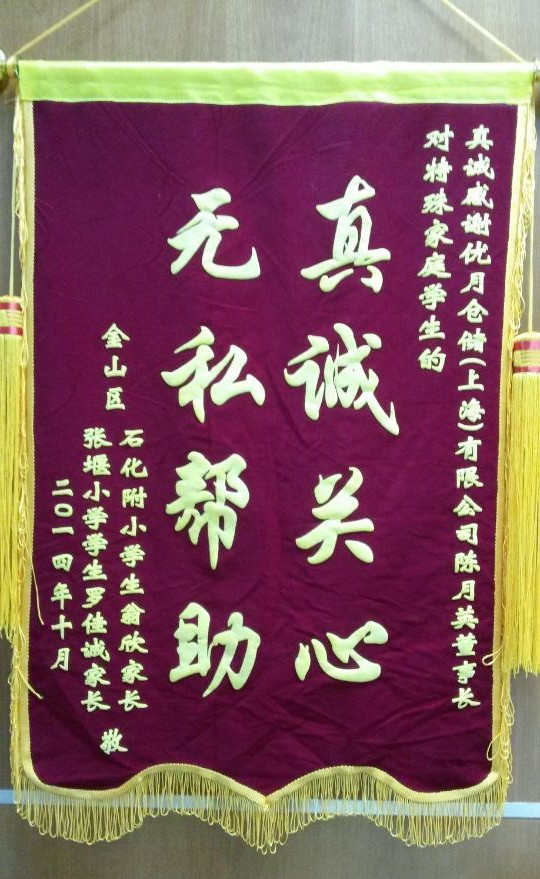 真诚感谢优月仓储(上海)有限公司陈月英董事长
对特殊家庭学生的
真诚关心
无私帮助
金山区
石化附小学生翁欣家长
张堰小学学生罗佳诚家长
敬
二〇一四年十月